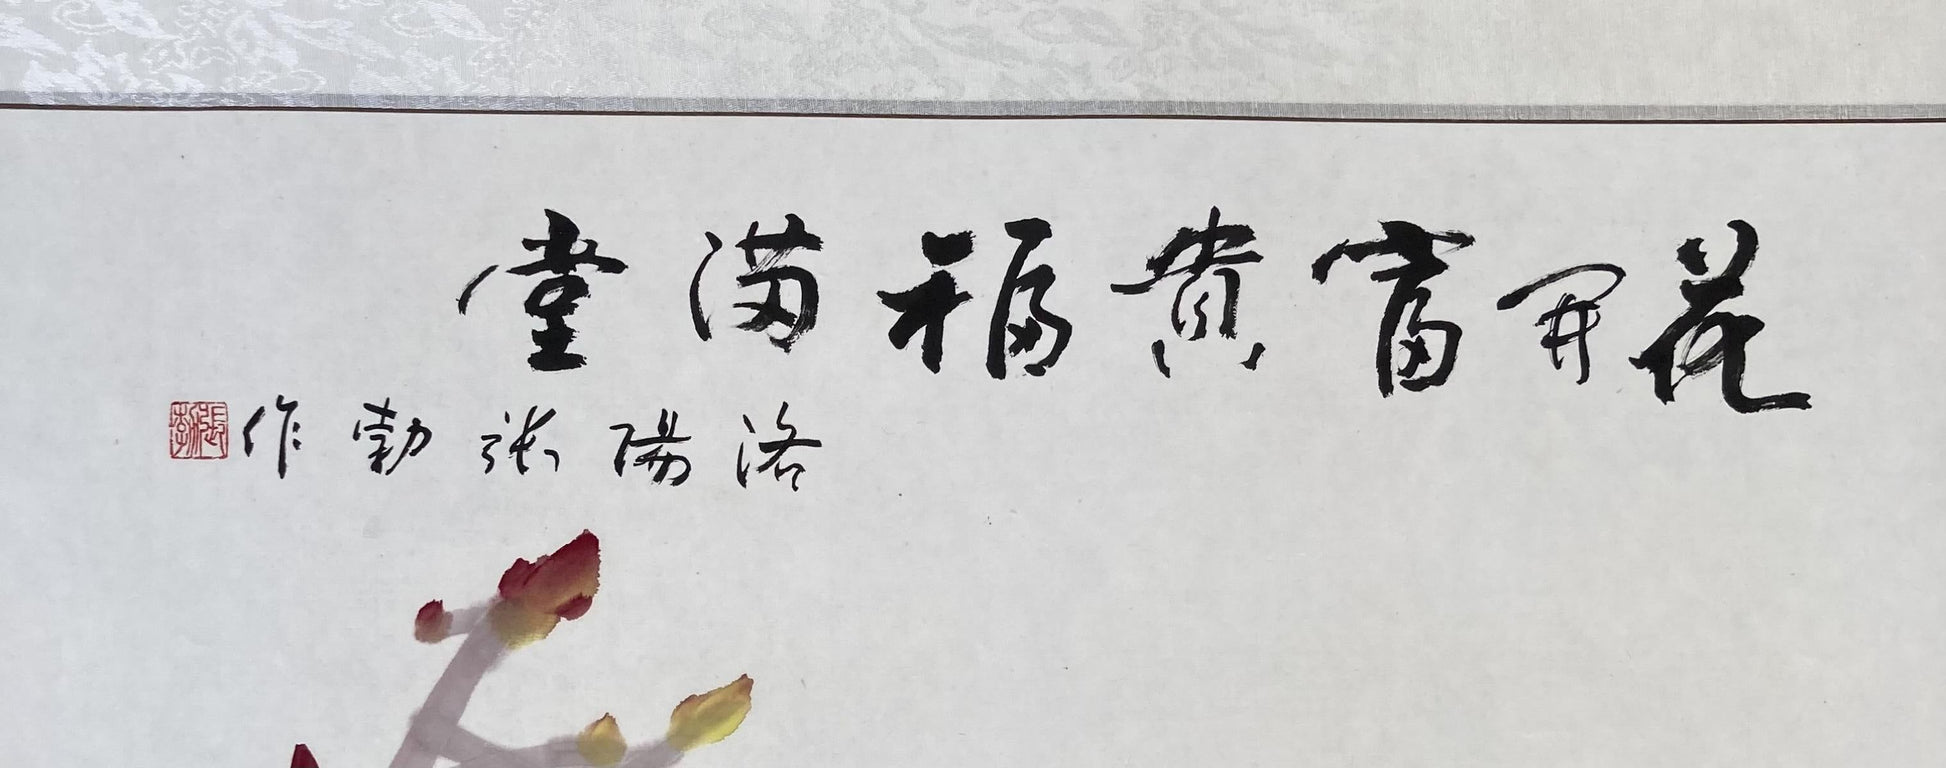 花開富貴福滿堂
洛陽張勃作
張勃